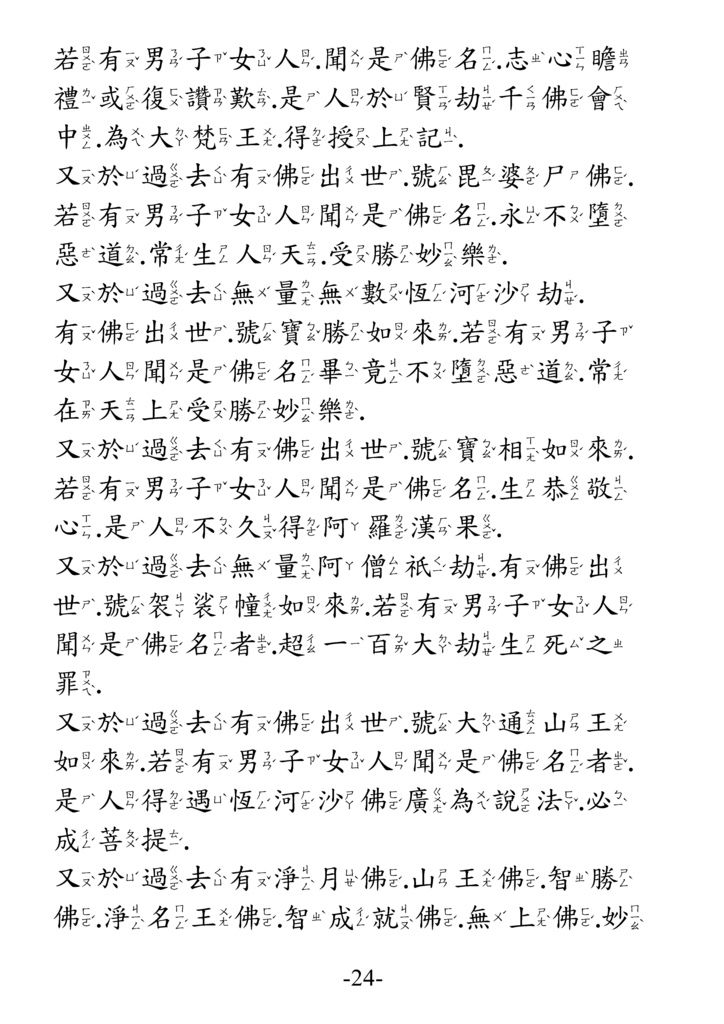 若有男子女人.聞是佛名.志心瞻
禮或復讚歎.是人於賢劫千佛會
中.為大梵王.得授上記.
又於過去有佛出世.號毘婆尸佛.
若有男子女人聞是佛名.永不墮
惡道.常生人天.受勝妙樂.
又於過去無量無數恆河沙劫.
有佛出世.號寶勝如來.若有男子
女人聞是佛名畢竟不墮惡道.常
在天上受勝妙樂.
又於過去有佛出世.號寶相如來.
若有男子女人聞是佛名.生恭敬
心.是人不久得阿羅漢果.
又於過去無量阿僧祇劫.有佛出
世.號袈裟幢如來.若有男子女人
聞是佛名者.超一百大劫生死之
罪.
又於過去有佛出世.號大通山王
如來.若有男子女人聞是佛名者.
是人得遇恆河沙佛廣為說法.必
成菩提.
又於過去有淨月佛.山王佛.智勝
佛.淨名王佛.智成就佛.無上佛.妙
-24-